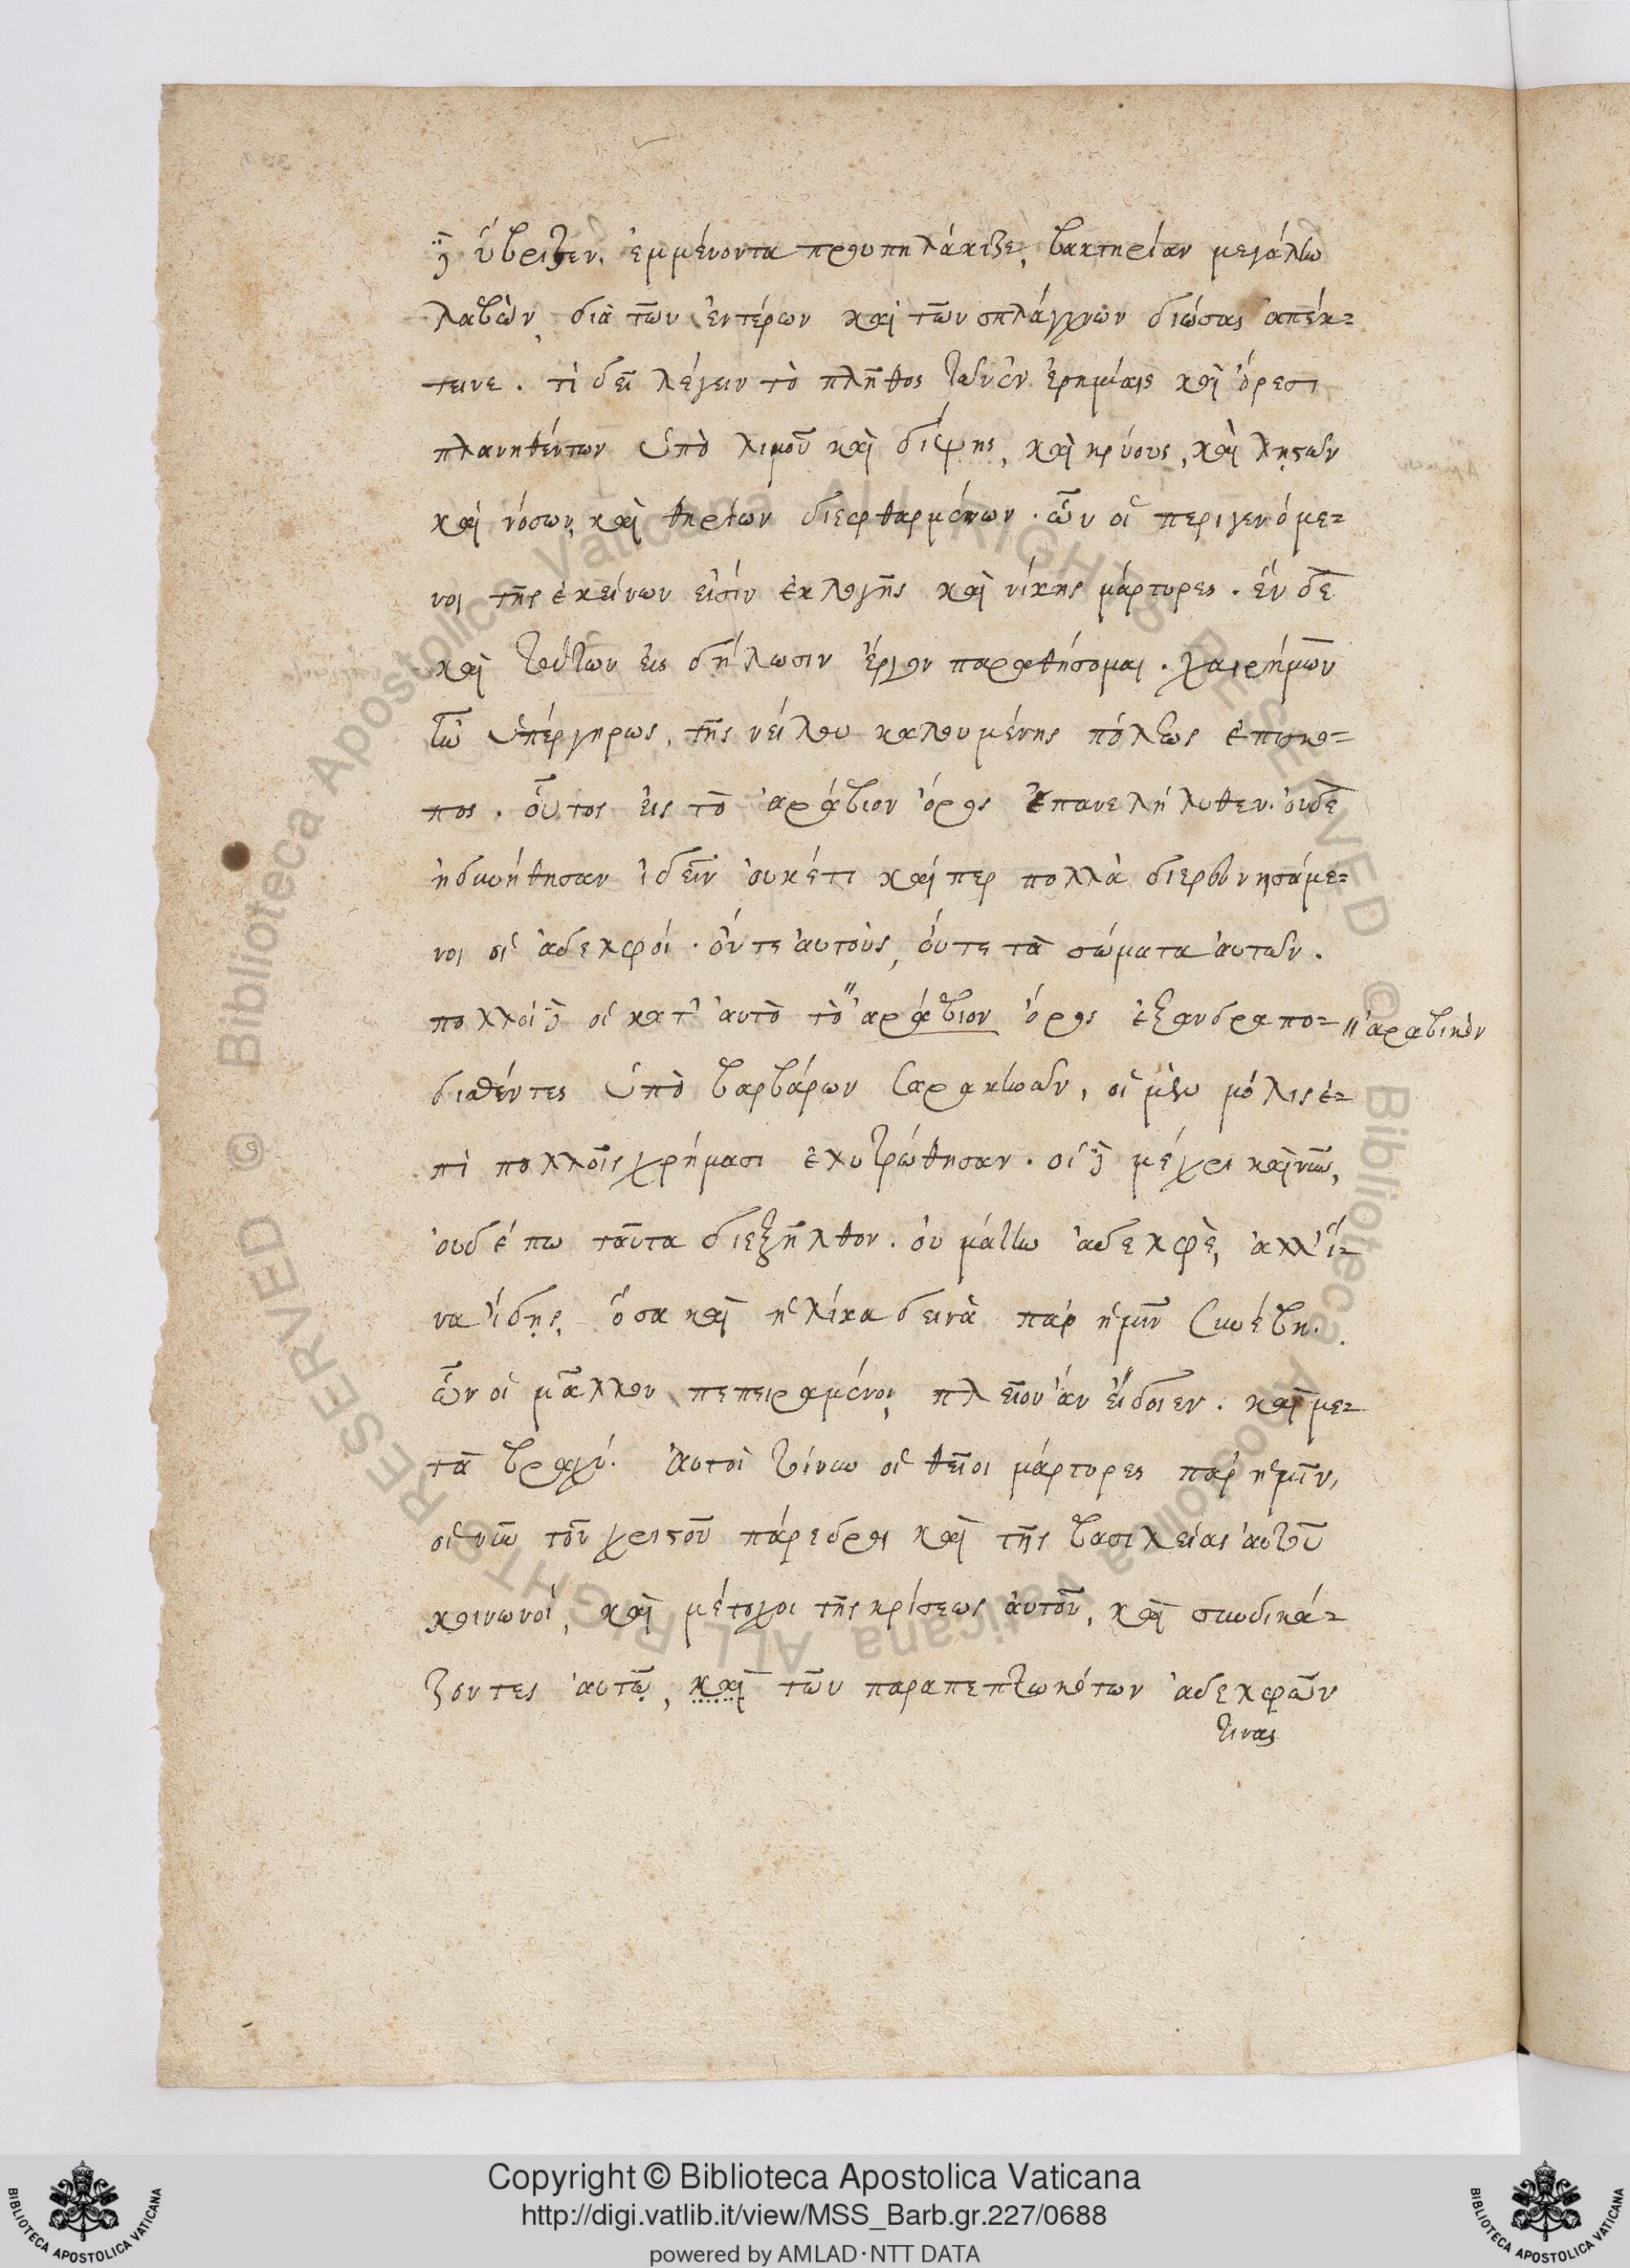 δὲ ὕβριζεν. ἐμμένοντα προυπηλάκιζε, βακτηρίαν μεγάλην
λαβὼν, διὰ τῶν ἐντέρων καὶ τῶν σπλάγχνων διώσας ἀπέκ=
τεινε. τί δεῖ λέγειν τὸ πλῆθος τῶν ἐν ἐρημίαις καὶ ὄρεσι
πλανηθέντων ὑπὸ λιμοῦ καὶ δίψης, καὶ κρύους, καὶ λῃστῶν
καὶ νόσων, καὶ θηρίων διεφθαρμένων. ὧν οἱ περιγενόμε=
νοι τῆς ἐκείνων εἰσὶν ἐκλογῆς καὶ νίκης μάρτυρες. ἓν δὲ
καὶ τούτων εἰς δήλωσιν ἔργον παραθήσομαι. χαιρήμων
ἦν ὑπέργηρως, τῆς νείλου καλουμένης πόλεως ἐπισκο=
πος. οὗτος εἰς τὸ ἀράβιον ὄρος ἐπανελήλυθεν. οὐδὲ
ἠδυνήθησαν ἰδεῖν οὐκέτι καίπερ πολλὰ διερευνησάμε=
νοι οἱ ἀδελφοί. οὔτε αὐτοὺς, οὔτε τὰ σώματα αὐτῶν.
πολλοὶ δὲ οἱ κατ' αὐτὸ τὸ "ἀράβιον ὄρος ἐξανδραπο= "ἀραβικὸν
δισθέντες ὑπὸ βαρβάρων σαρακηνῶν, οἱ μὲν μόλις ἐ=
πὶ πολλοῖς χρήμασι ἐλυτρώθησαν. οἱ δὲ μέχρι καὶ νῦν,
οὐδέπω ταῦτα διεξῆλθον. οὐ μάτην ἀδελφὲ, ἀλλ' ἵ=
να ἴδῃς, ὅσα καὶ ἡλίκα δεινὰ παρ ἡμῖν συνέβη.
ὧν οἱ μᾶλλον πεπειραμένοι, πλείον' ἂν εἴδοιεν. καὶ με=
τὰ βραχύ. Αὐτοὶ τοίνυν οἱ θεῖοι μάρτυρες παρ' ἡμῖν,
οἱ νῦν τοῦ χριστοῦ πάρεδροι καὶ τῆς βασιλείας αὐτοῦ
κοινωνοί, καὶ μέτοχοι τῆς κρίσεως αὐτοῦ, καὶ συνδικά=
ζοντες αὐτῷ, καὶ τῶν παραπεπτωκότων ἀδελφῶν
τινας
Copyright © Biblioteca Apostolica Vaticana
http://digi.vatlib.it/view/MSS_Barb.gr.227/0688
powered by AMLAD·NTT DATA